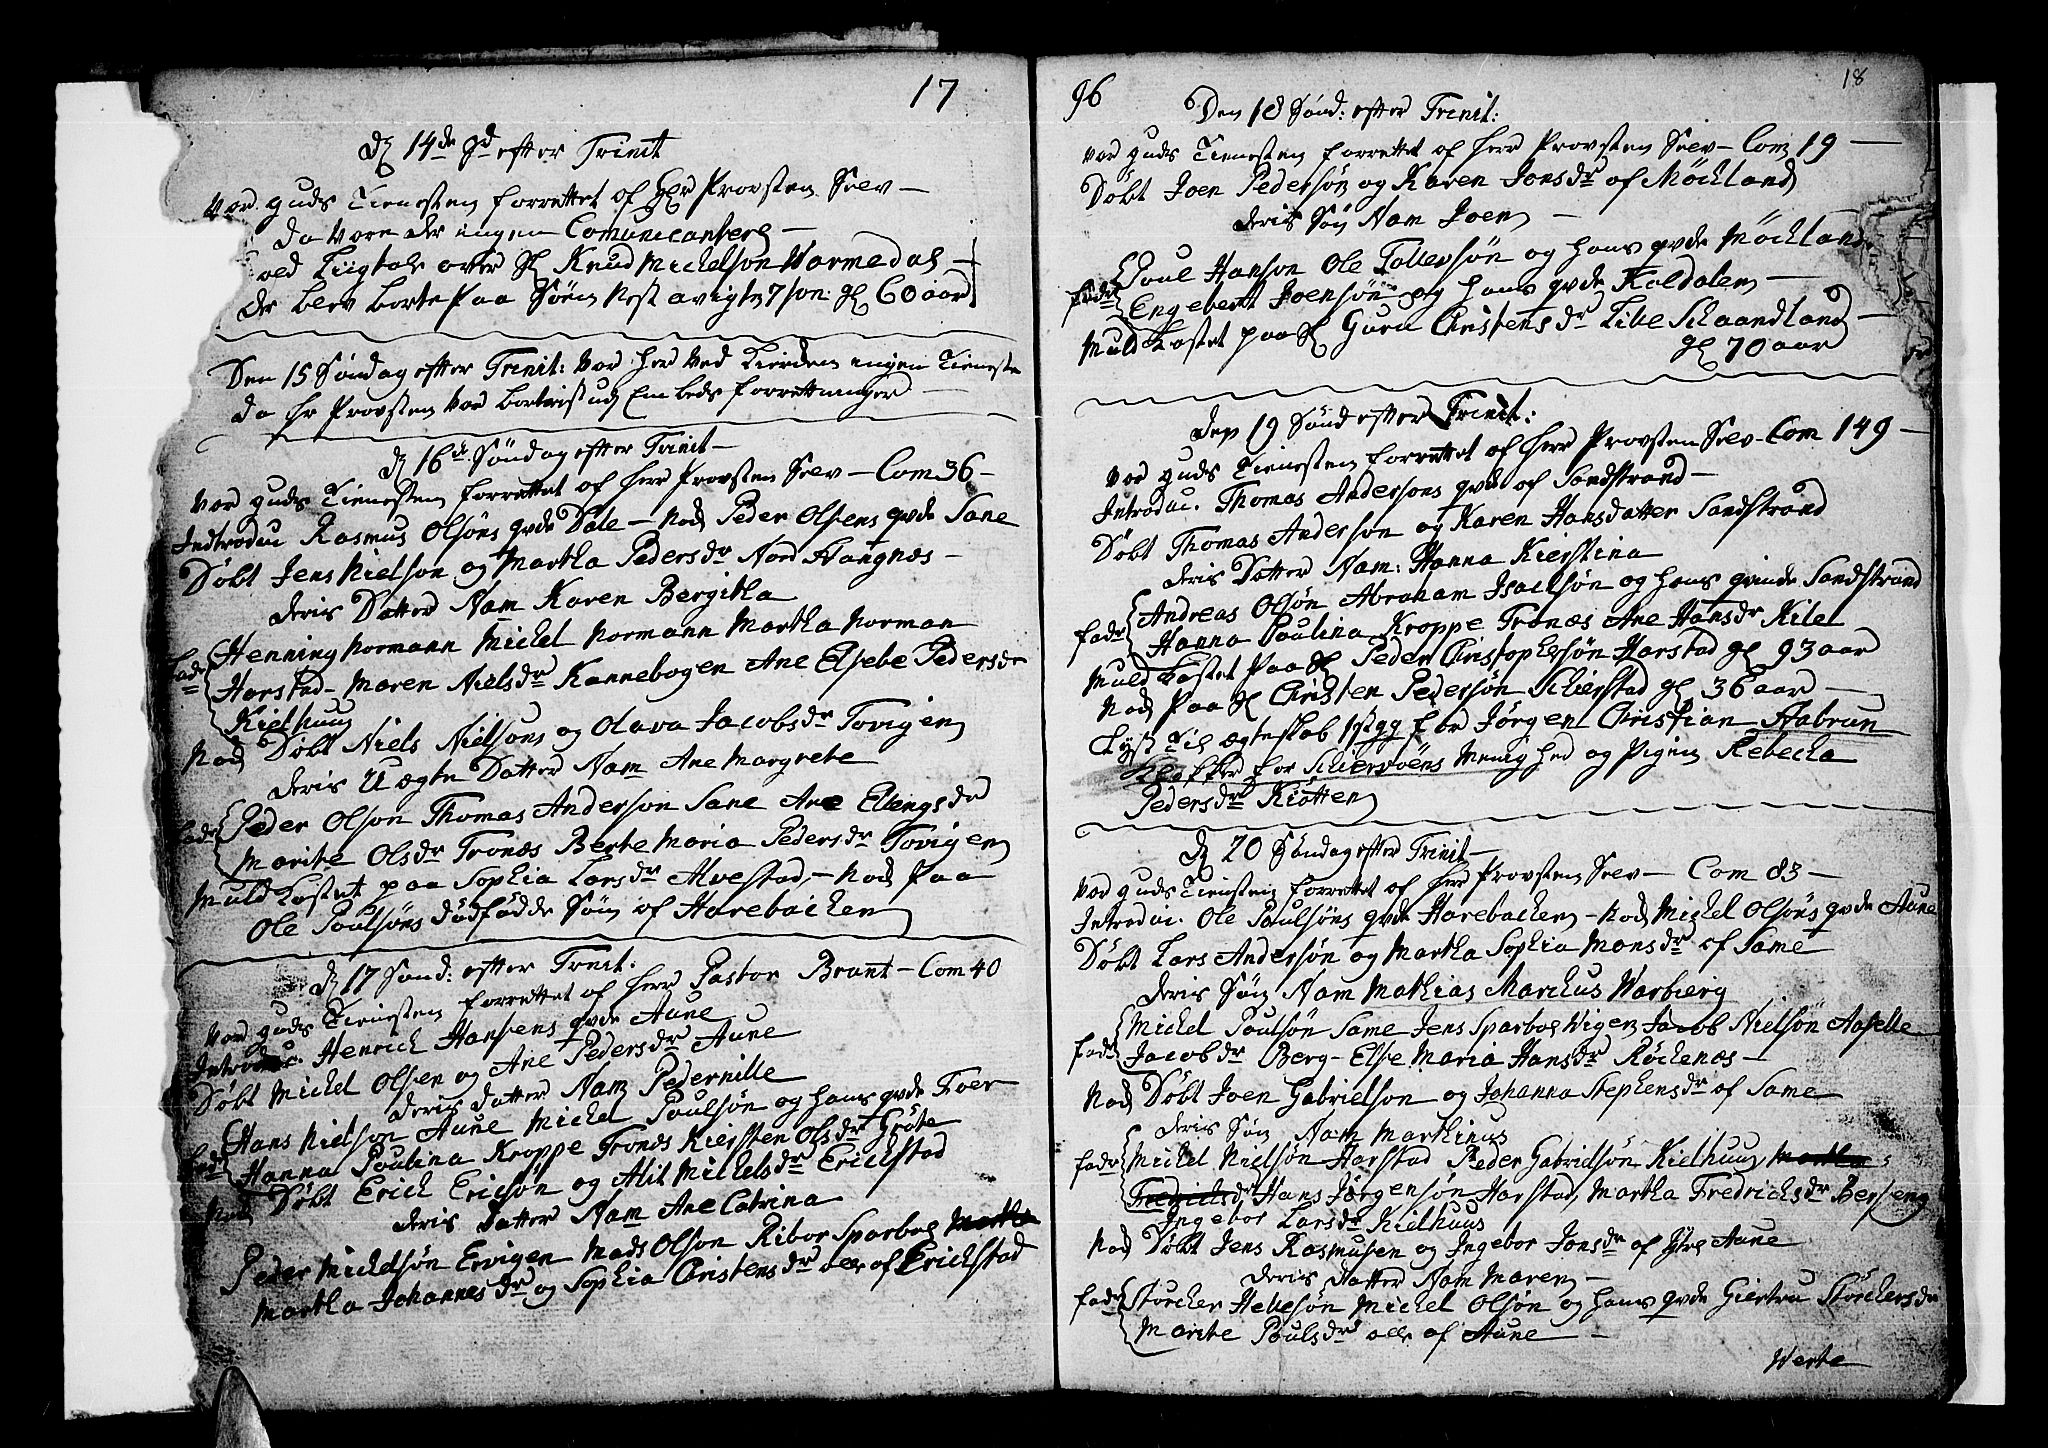 17
D 14de Sd efter Trinit
Var guds Tienesten forrettet af Hr Provsten Selv
da vare der ingen Comunicantere
ved Liigtale over Sl Knud Michelson Varmedal
der blev borte paa Søen nest avigte 7 son: gl 60 aar
Den 15 Søndag efter Trinit: var her ved Kierken ingen Tieneste
da Hr Provsten var bortreist udj Embeds forrettninger
D 16de Søndag efter Trinit
Var guds Tienesten forrettet af Herr Provsten Selv – Com 36
Indtroduc Rasmus Olsöns qvde Dale – Nok Peder Olsens qvde Sane
Döbt Jens Nielson og Martha Pedersdr Nord Hangnæs
deris Datter Nam Karen Bergitha
fadr Henning Normann Michel Normann Martha Norman
Harstad – Maren Nielsdr Kannebogen Ane Elsebe Pedersdr
Kielhuus
Nok Döbt Niels Nielsöns og Olava Jacobsdr Tovigen
deris Uægte Datter Nam Ane Margrete
fadr Peder Olson Thomas Anderson Sane Ane Ellengsdr
Marite Olsdr Tronæs Berte Maria Pedersdr Tovigen
Muld kastet paa Sophia Larsdr Alvestad – Nok paa
Ole Poulsöns dödfödde Sön af Harebacken
D 17 Sönd: efter Trinit:
Var guds Tienesten forrettet af Herr Pastor Brant – Com 40
Introduc. Henrich Hansens qvde Aune
Döbt Michel Olsen og Ane Pedersdr Aune
deris datter Nam Pedernille
fadr Hans Nielson Aune Michel Poulsön og hans qvde Foer
Hanna Poulina Kroppe Tronæs Kiersten Olsdr Gröte
Nok Döbt Erich Ericsön og Alit Michelsdr Erichstad
deris Datter Nam Ane Catrina
Peder Michelsön Ervigen Mads Olson Ribor Sparboe Martha
Martha Johannesdr og Sophia Christensdr alle af Erichstad
96
18
Den 18 Sönd: efter Trinit:
Var guds Tienesten forrettet af Herr Provsten Selv – Com 19
Döbt Joen Pedersön og Karen Jonsdr af Möckland
deris Sön Nam Joen
fadr Poul Hanson Ole Tollevsön og hans qvde Möckland
Engebert Joensön og hans qvde Koldalen
Muld kastet paa Sl Guru Christensdr Lille Schaandland
gl 70 aar
Den 19 Sönd efter Trinit:
Var guds Tienesten forrettet af Herr Provsten Selv – Com 149
Introduc. Thomas Andersons qvde af Sandstrand
Döbt Thomas Anderson og Karen Hansdatter Sandstrand
deris Datter Nam: Hanna Kierstina
fadr Andreas Olsön Abraham Isachsön og hans qvinde Sandstrand
Hanna Poulina Kroppe Tronæs Ane Hansdr Kilel
Muld kastet paa Sl Peder Christophersön Harstad gl 93 aar
Nok paa Sl Christen Pedersön Schierstad gl 36 aar
Lyst til ægteskab 1ste gg for Jörgen Christian Aabrun
Klokker for Schiersöens Menighed og Pigen Rebecka
Pedersdr Kiötten
D 20 Söndag efter Trinit
Var guds Tienesten forrettet af Herr Provsten Selv – Com 83
Introduc. Ole Poulsöns qvde Harebacken – Nok Michel Olsöns qvde Aune
Döbt Lars Andersön og Martha Sophia Monsdr af Same
deris Sön Nam Mathias Marchus Warbierg
fadr Michel Poulsön Same Jens Sparboe Vigen Jacob Nielsön Aaselle
Jacobsdr Berg – Else Maria Hansdr Röckenæs
Nok Döbt Joen Gabrielson og Johanna Stephensdr af Same
deris Sön Nam Marthinus
fadr Michel Nielsön Harstad Peder Gabrielsön Kielhuus Martha
Fredrichsdr Hans Jörgensön Harstad, Martha Fredrichsdr Berseng
Ingebor Larsdr Kielhuus
Nok Döbt Jens Rasmusen og Ingebor Jonsdr af Ytre Aune
deris Datter Nam Maren
fadr Störcker Hebesön Michel Olsön og hans qvde Giertru Störckersdr
Marite Poulsdr alle af Aune
Verte